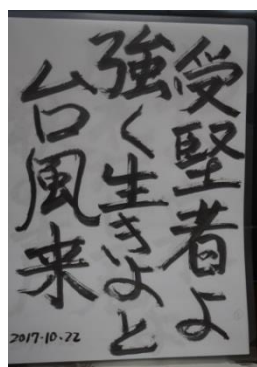 受堅者よ
強く生きよと
台風来
2017-10-22